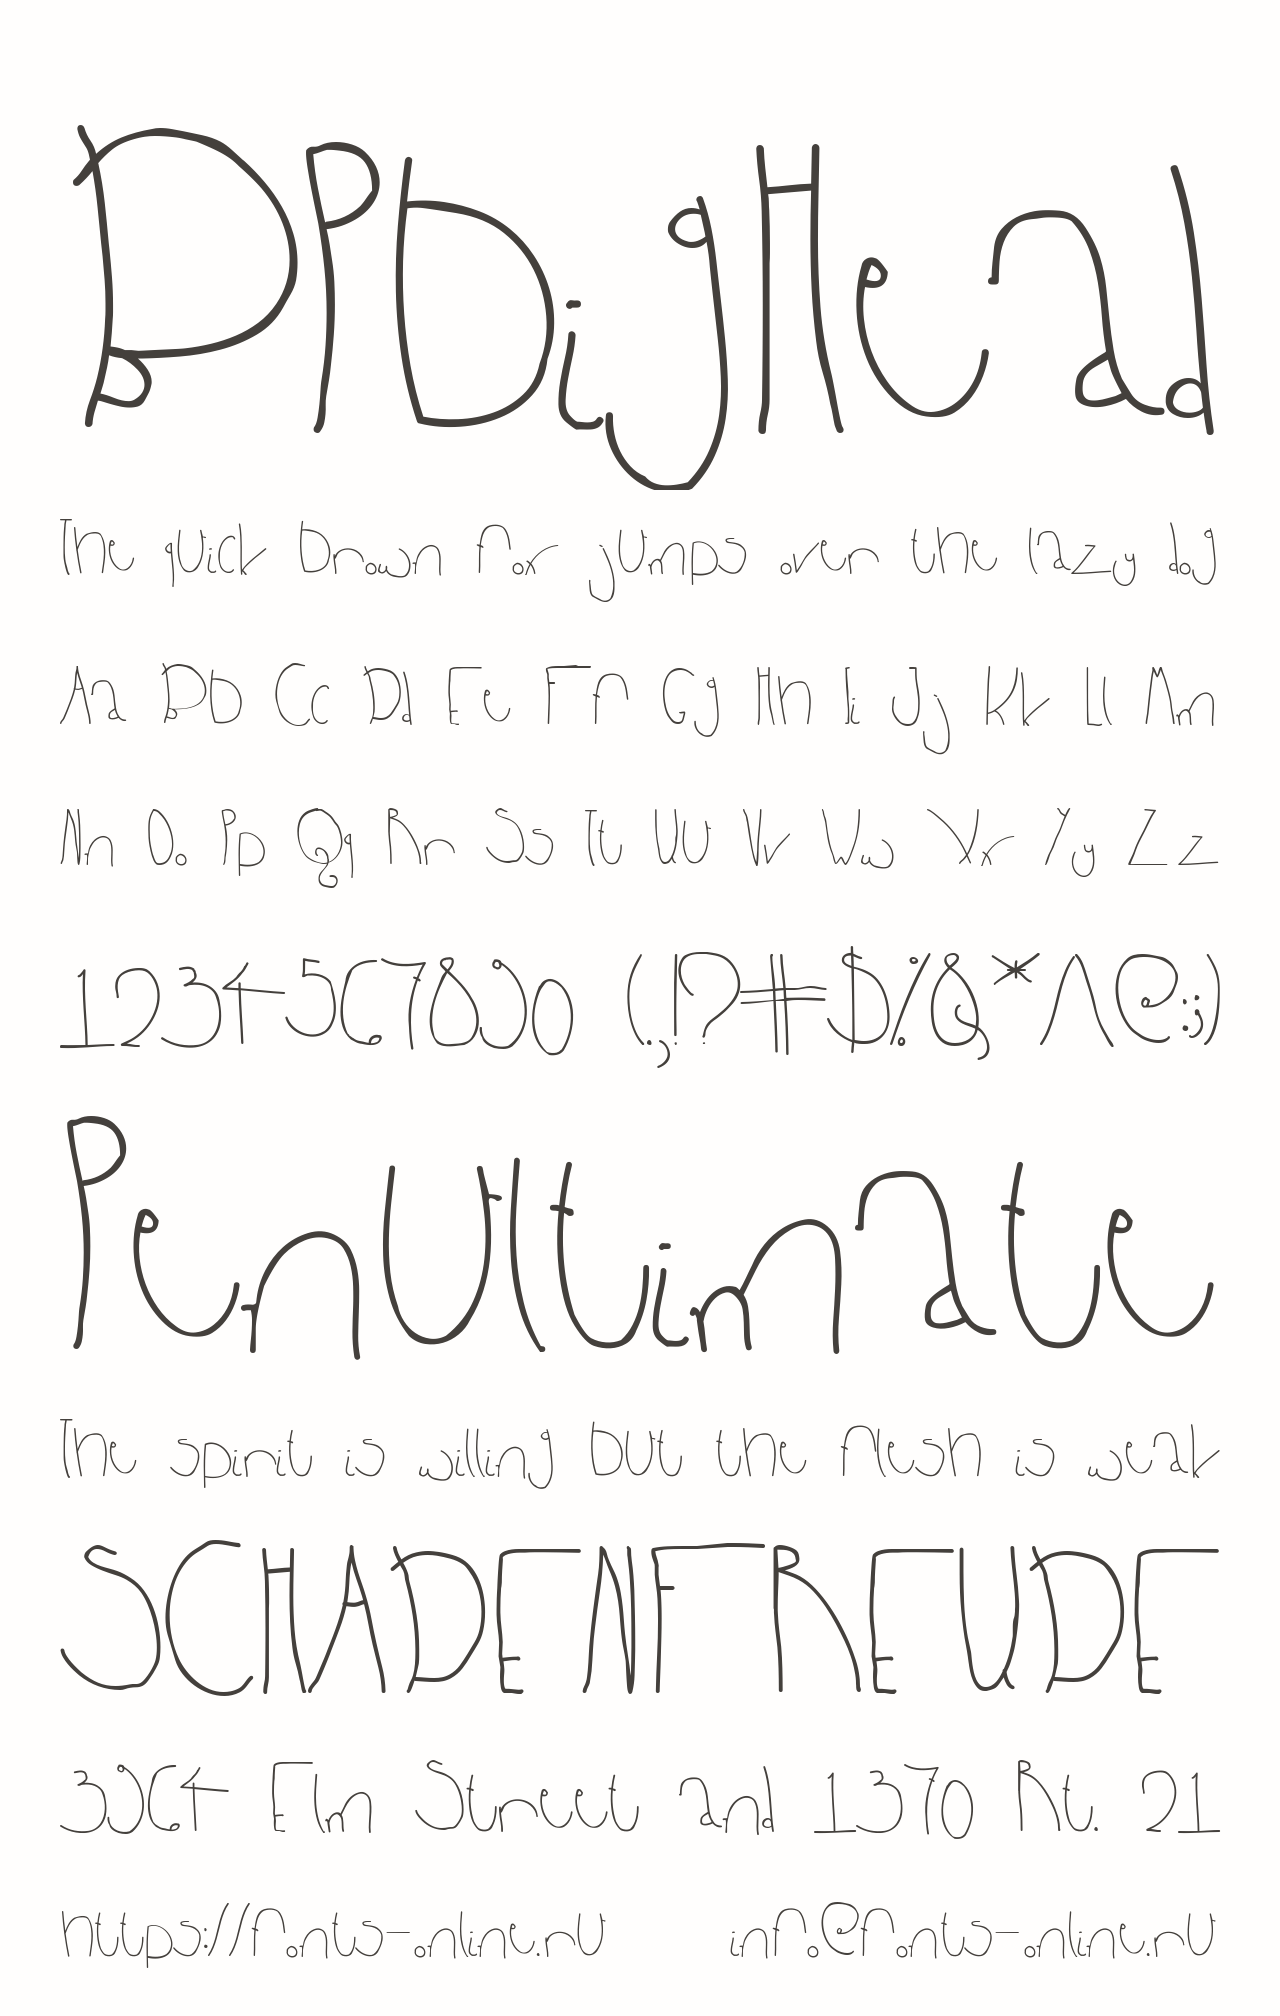 BPbigHead
The quick brown fox jumps over the lazy dog
Aa Bb Cc Dd Ee Ff Gg Hh Ii Jj Kk Ll Mm
Nn Oo Pp Qq Rr Ss Tt Uu Vv Ww Xx Yy Zz
1234567890 (.,!?#$%&*^@:;)
Penultimate
The spirit is willing but the flesh is weak
SCHADENFREUDE
3964 Elm Street and 1370 Rt. 21
https://fonts-online.ru info@fonts-online.ru